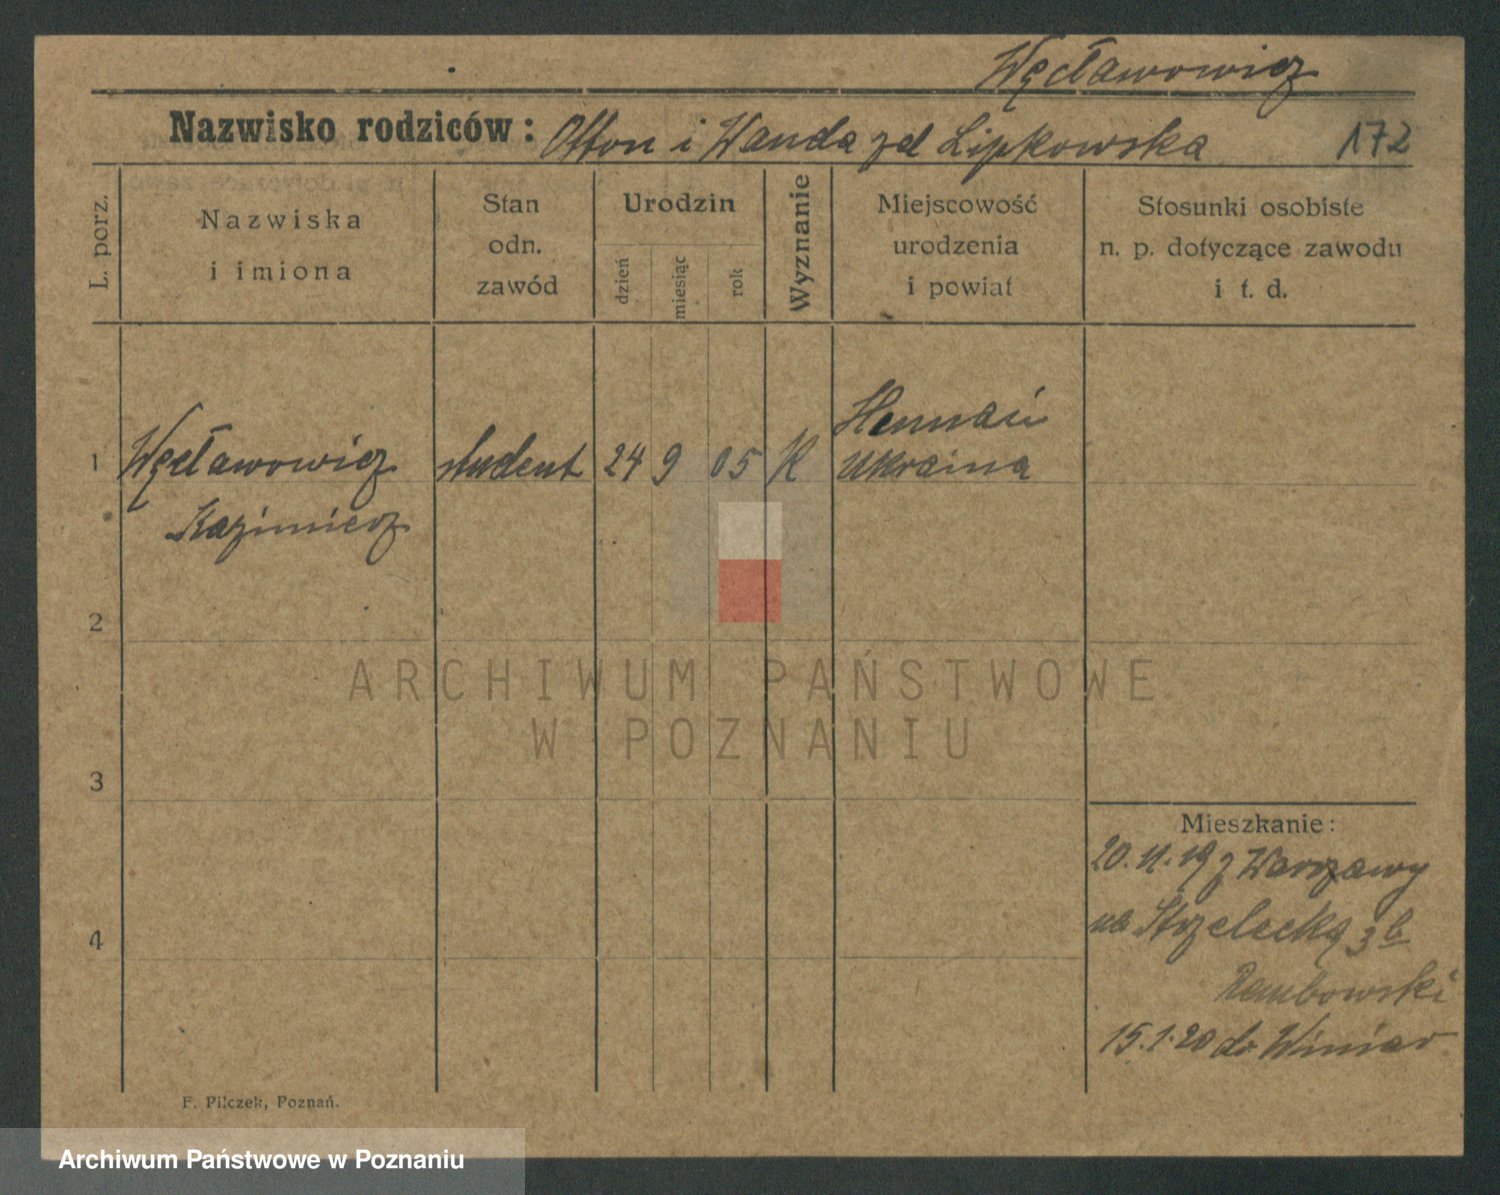 Węcławowicz
Nazwisko rodziców: Otton i Wanda zd Lipkowska 172
L. porz.
Nazwiska
i imiona
Stan
odn.
zawód
Urodzin
dzień
miesiąc
rok
Wyznanie
Miejscowość
urodzenia
i powiat
Stosunki osobiste
n. p. dotyczące zawodu
i t. d.
1 Węcławowicz student 24 9 05 K Humań
Ukraina
Kazimierz
2
3
4
ARCHIWUM PAŃSTWOWE
W POZNANIU
Mieszkanie:
20. 11. 19 z Warszawy
na Strzelecką 3b
Rembowski
15. 1. 20 do Winiar
F. Pilczek, Poznań.
Archiwum Państwowe w Poznaniu